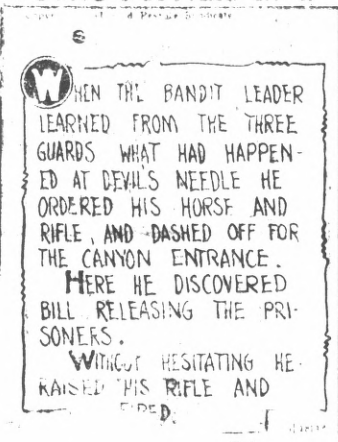 WHEN THE BANDIT LEADER
LEARNED FROM THE THREE
GUARDS WHAT HAD HAPPEN-
ED AT DEVIL'S NEEDLE HE
ORDERED HIS HORSE AND
RIFLE, AND DASHED OFF FOR
THE CANYON ENTRANCE.
HERE HE DISCOVERED
BILL RELEASING THE PRI-
SONERS.
WITHOUT HESITATING HE
RAISED HIS RIFLE AND
FIRED.